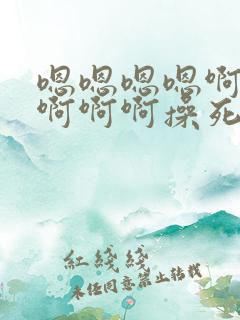 嗯嗯嗯嗯啊
啊啊啊操死
红线线
未经同意禁止转载